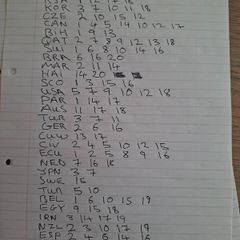 KOR 3 7 10 11 18
CZE 2 10 15 12
CAN 1 4 5 14 10 12 17
BIH 1 9 13
QAT 2 7 8 9 12 13 18
SWI 1 6 8 10 14 16
BRA 6 16 20
MAR 2 11 14
HAI 14 20
SCO 1 3 15 16
USA 5 7 9 10 12 18
PAR 1 14 17
AUS 11 17 18
TUR 3 7 11
GER 2 6 16
CUW 13 17
CIV 2 4 5 10 12 15
ECU 1 2 5 8 9 16
NED 7 16 18
JPN 3 7
SWE 15
TUN 5 10
BEL 1 6 10 15 19
EGY 9 15 18
IRN 3 14 17 19
NZL 2 3 10 17 19
ESP 2 4 6 14 16